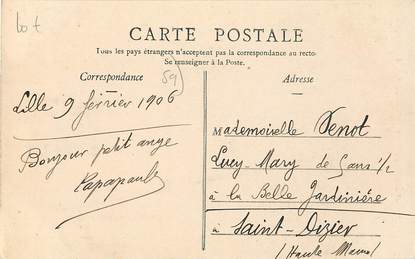 bot
CARTE POSTALE
Tous les pays étrangers n'acceptent pas la correspondance au recto-
Se renseigner à la Poste.
Correspondance
59
Adresse
Lille 9 février 1906
Bonjour petit ange
Papapaul
Mademoiselle Venot
Lucy-Mary de Gans 1/2
à la Belle Jardinière
à Saint-Dizier
(Haute Marne)